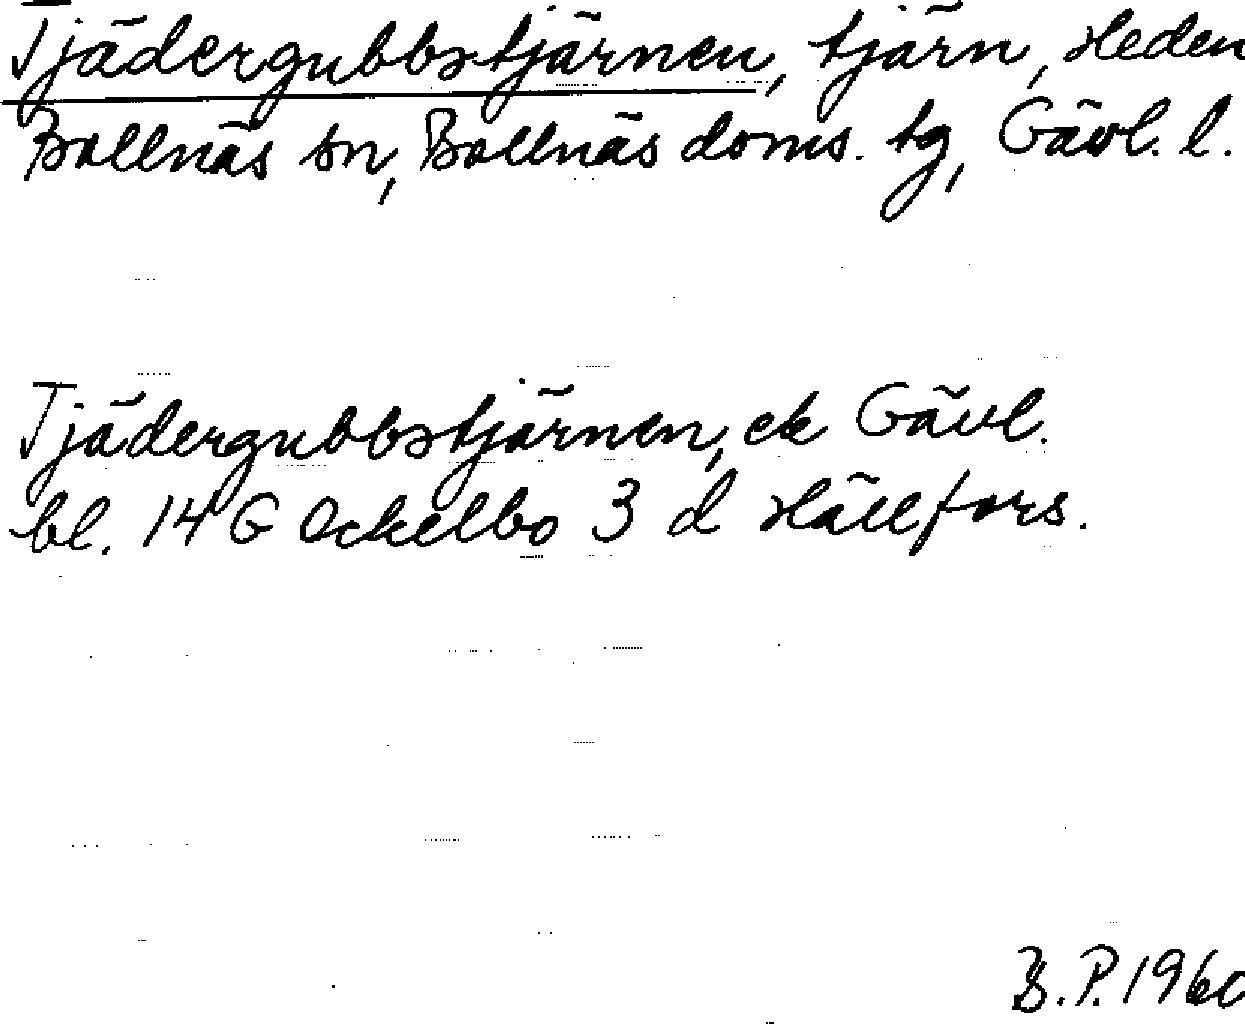 Tjädergubbstjärnen, tjärn, Heden
Bollnäs sn, Bollnäs doms. tg, Gävl. l.
Tjädergubbstjärnen, ek Gävl.
bl. 14 G Ockelbo 3 d Hällfors.
B.P. 1960